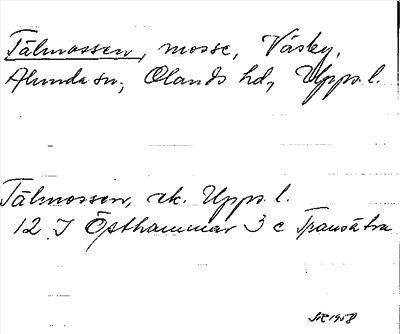 Tälmossen, mosse, Väsby,
Alunda sn; Olands hd, Upps. l.
Tälmossen, ek. Upps. l.
12 I Östhammar 3 c Transätra